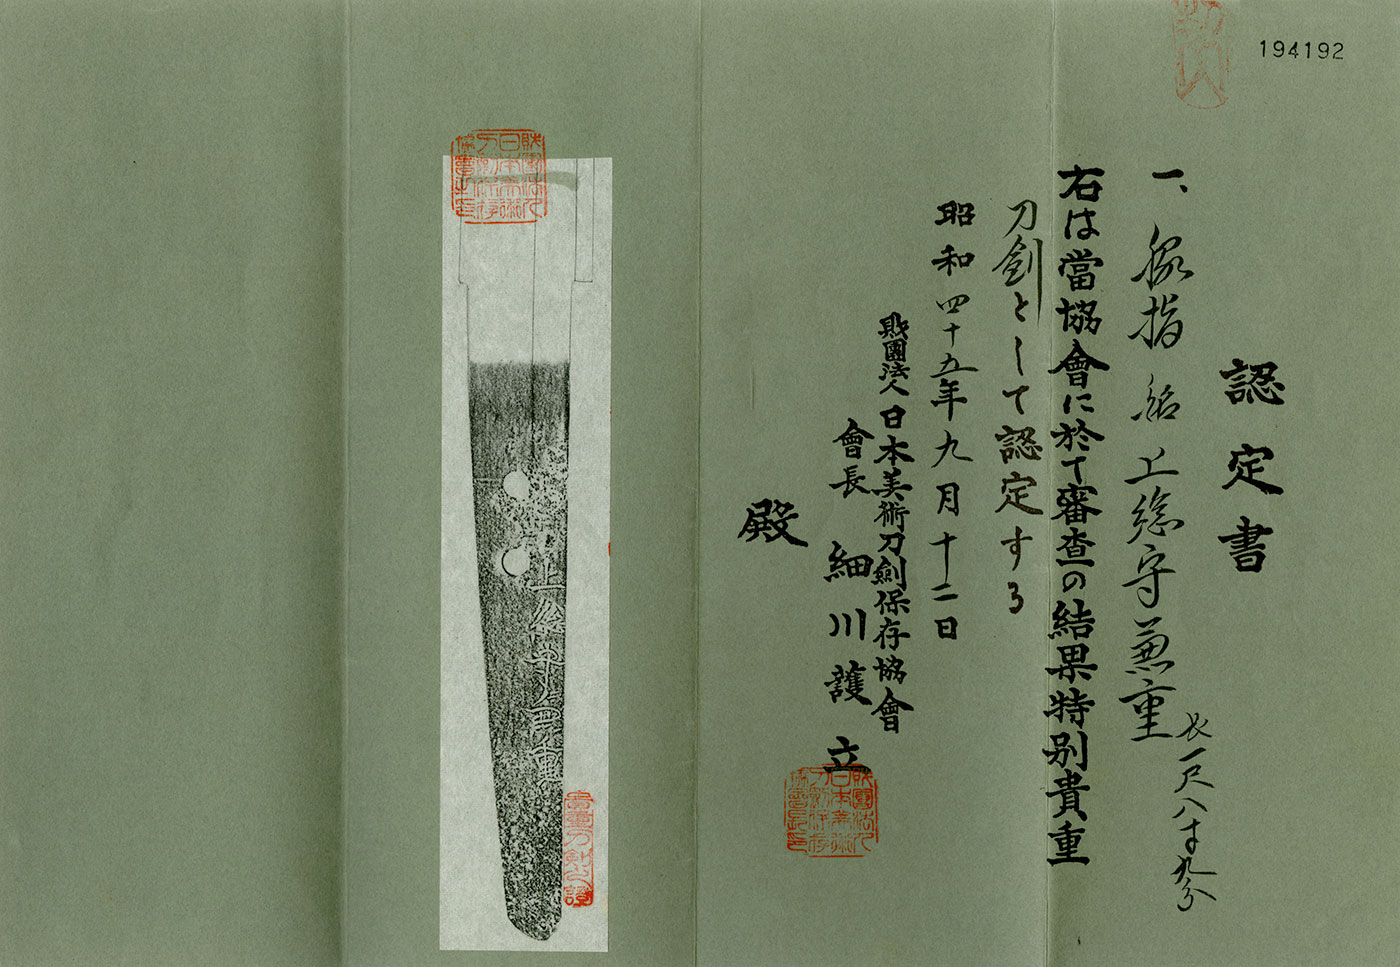 194192
認定書
一、脇指 銘 上総守兼重 長一尺八寸九分
右は當協會に於て審査の結果特別貴重
刀劍として認定する
昭和四十五年九月十二日
財團法人日本美術刀劍保存協會
會長 細川護立
殿
財團法人日本美術刀劍保存協會長印
財團法人日本美術刀劍保存協會長印
上総守兼重
貴重刀剣之證